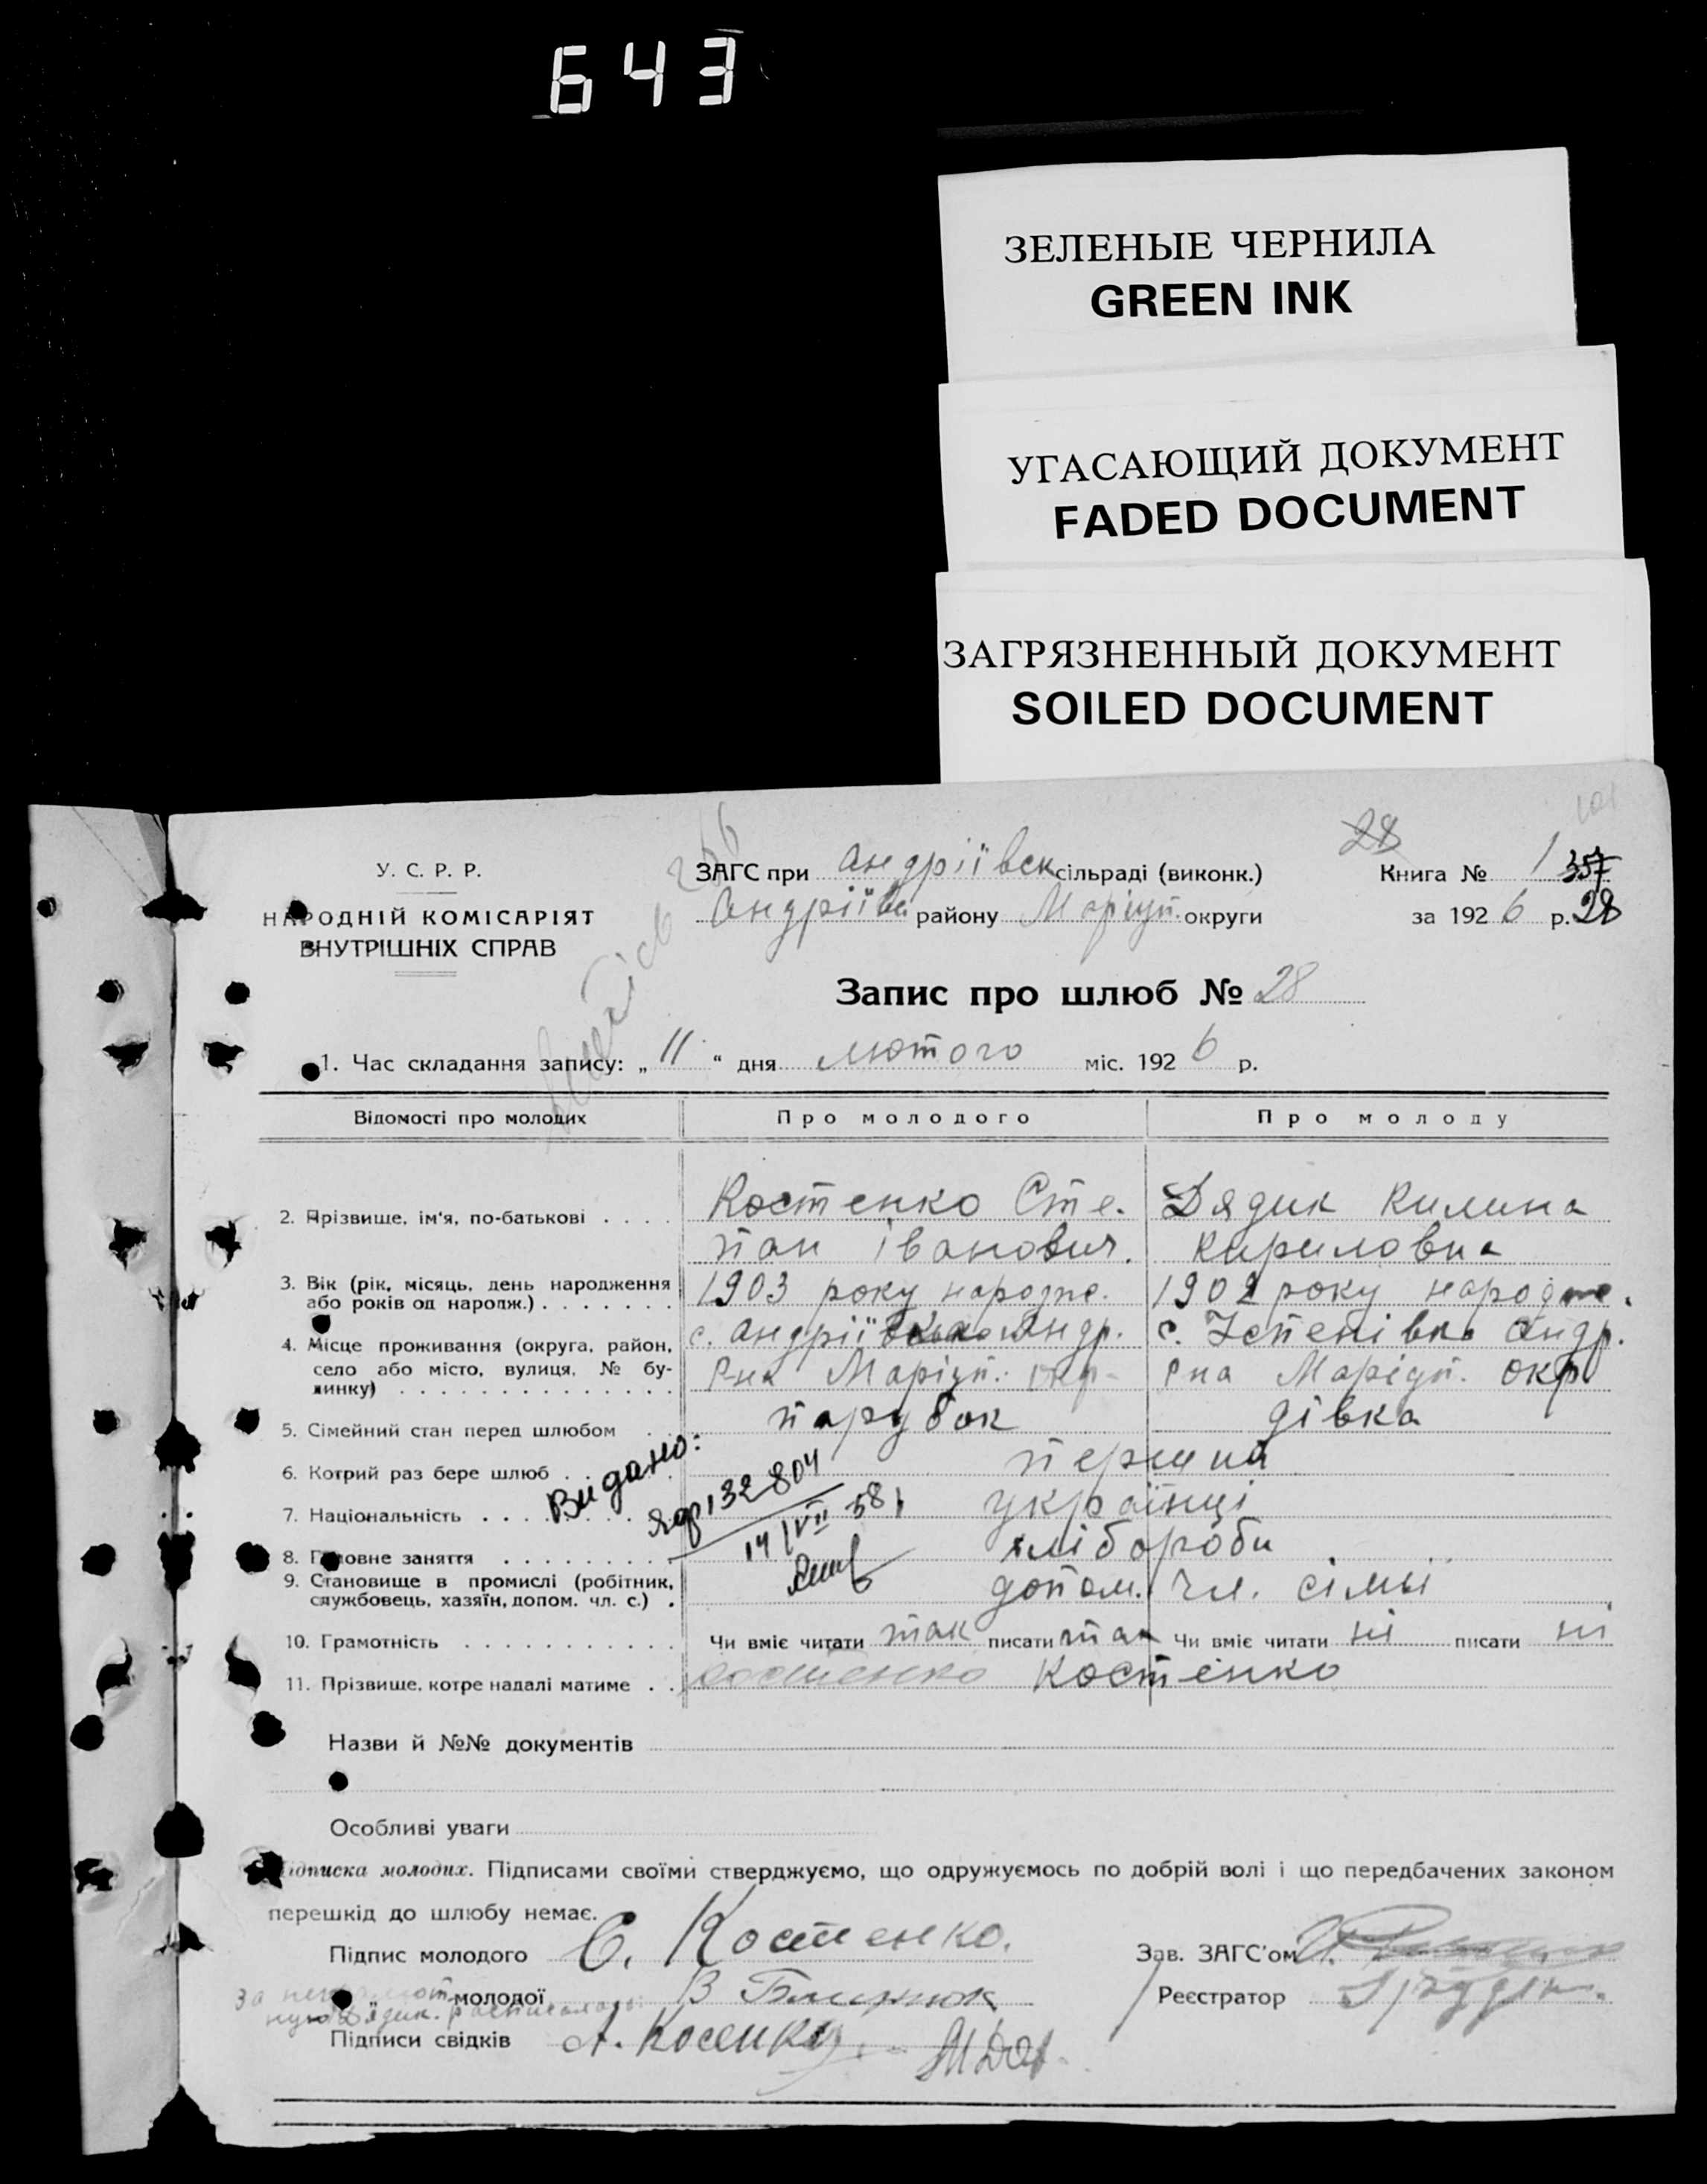 643
ЗЕЛЕНЫЕ ЧЕРНИЛА
GREEN INK
УГАСАЮЩИЙ ДОКУМЕНТ
FADED DOCUMENT
ЗАГРЯЗНЕННЫЙ ДОКУМЕНТ
SOILED DOCUMENT
У. С. Р. Р.
НАРОДНІЙ КОМІСАРІЯТ
ВНУТРІШНІХ СПРАВ
28
ЗАГС при Андріївск сільраді (виконк.)
Книга № 1 357
Андріївск району Маріуп. округи
за 1926 р. 28
Запис про шлюб № 28
1. Час складання запису: „ 11 “ дня лютого міс. 1926 р.
Відомості про молодих Про молодого Про молоду
2. Прізвище, ім'я, по-батькові . . . . Костенко Сте- Дядик Килина
пан Іванович. Кириловна
3. Вік (рік, місяць, день народження 1903 року народже. 1902 року народже.
або років од народж.) . . . . . . .
4. Місце проживання (округа, район, с. Андріївка Андр. с. Успенівка Андр.
село або місто, вулиця, № бу- р-на Маріуп. окр. р-на Маріуп. окр
динку) . . . . . . . . . . . . . .
5. Сімейний стан перед шлюбом . . парубок дівка
6. Котрий раз бере шлюб . . . . перший
Видано:
132804
14/VII 58
7. Національність . . . . . . . . українці
8. Головне заняття . . . . . . . . . хлібороби
9. Становище в промислі (робітник,
службовець, хазяїн, допом. чл. с.) . допом. чл. сімьї
10. Грамотність . . . . . . . . . . . Чи вміє читати так писати так Чи вміє читати ні писати ні
11. Прізвище, котре надалі матиме . . Костенко Костенко
Назви й №№ документів
Особливі уваги
Підписка молодих. Підписами своїми стверджуємо, що одружуємось по добрій волі і що передбачених законом
перешкід до шлюбу немає.
Підпис молодого С. Костенко.
Зав. ЗАГС'ом
За неграмот-
ную Дядик. расписалась
„ молодої В
Реєстратор
Підписи свідків А. Косенко